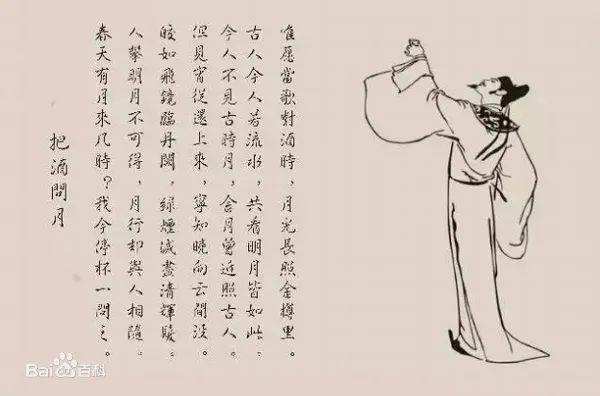 把酒問月
春天有月來几時？我今停杯一問之。
人攀明月不可得，月行却與人相隨。
皎如飛鏡臨丹闕，緑煙滅盡清輝發。
但見宵從海上來，寧知曉向云間没。
今人不見古時月，今月曾近照古人。
古人今人若流水，共看明月皆如此。
唯愿當歌對酒時，月光長照金樽里。
Bai百科